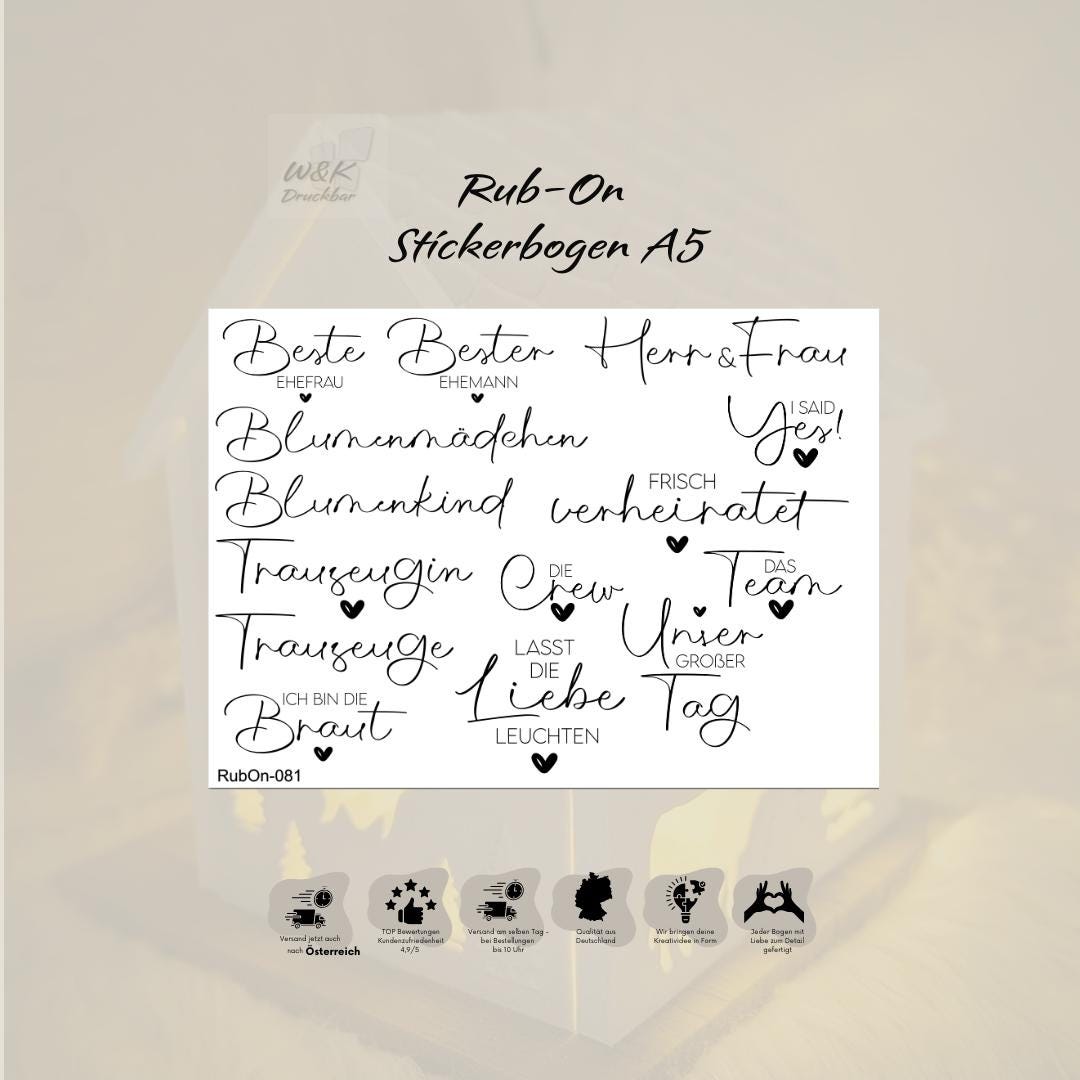 W&K
Druckbar
Rub-On
Stickerbogen A5
Beste
EHEFRAU
Bester
EHEMANN
Herr & Frau
Blumenmädchen
I SAID
Yes!
Blumenkind
FRISCH
verheiratet
Trauzeugin
DIE
Crew
DAS
Team
Trauzeuge
LASST
DIE
Liebe
LEUCHTEN
Unser
GROßER
Tag
ICH BIN DIE
Braut
RubOn-081
Versand jetzt auch
nach Österreich
TOP Bewertungen
Kundenzufriedenheit
4,9/5
Versand am selben Tag -
bei Bestellungen
bis 10 Uhr
Qualität aus
Deutschland
Wir bringen deine
Kreatividee in Form
Jeder Bogen mit
Liebe zum Detail
gefertigt